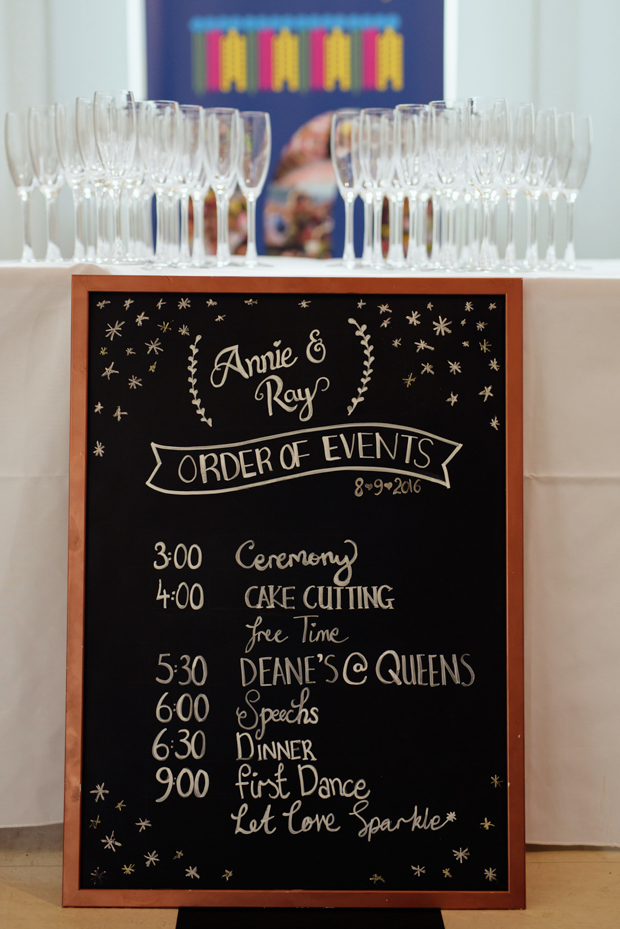 Annie &
Ray
ORDER OF EVENTS
8♥9♥2016
3:00 Ceremony
4:00 CAKE CUTTING
free Time
5:30 DEANE'S @ QUEENS
6:00 Speechs
6:30 DINNER
9:00 first Dance
Let Love Sparkle*